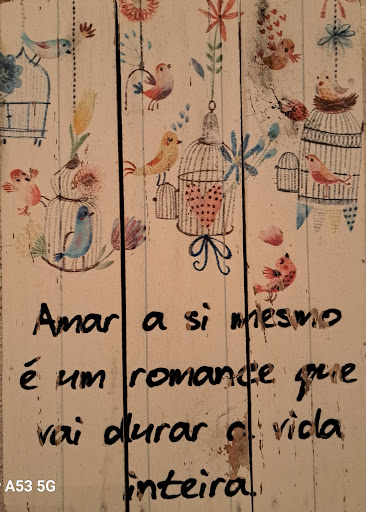 Amar a si mesmo
é um romance que
vai durar a vida
inteira.
A53 5G